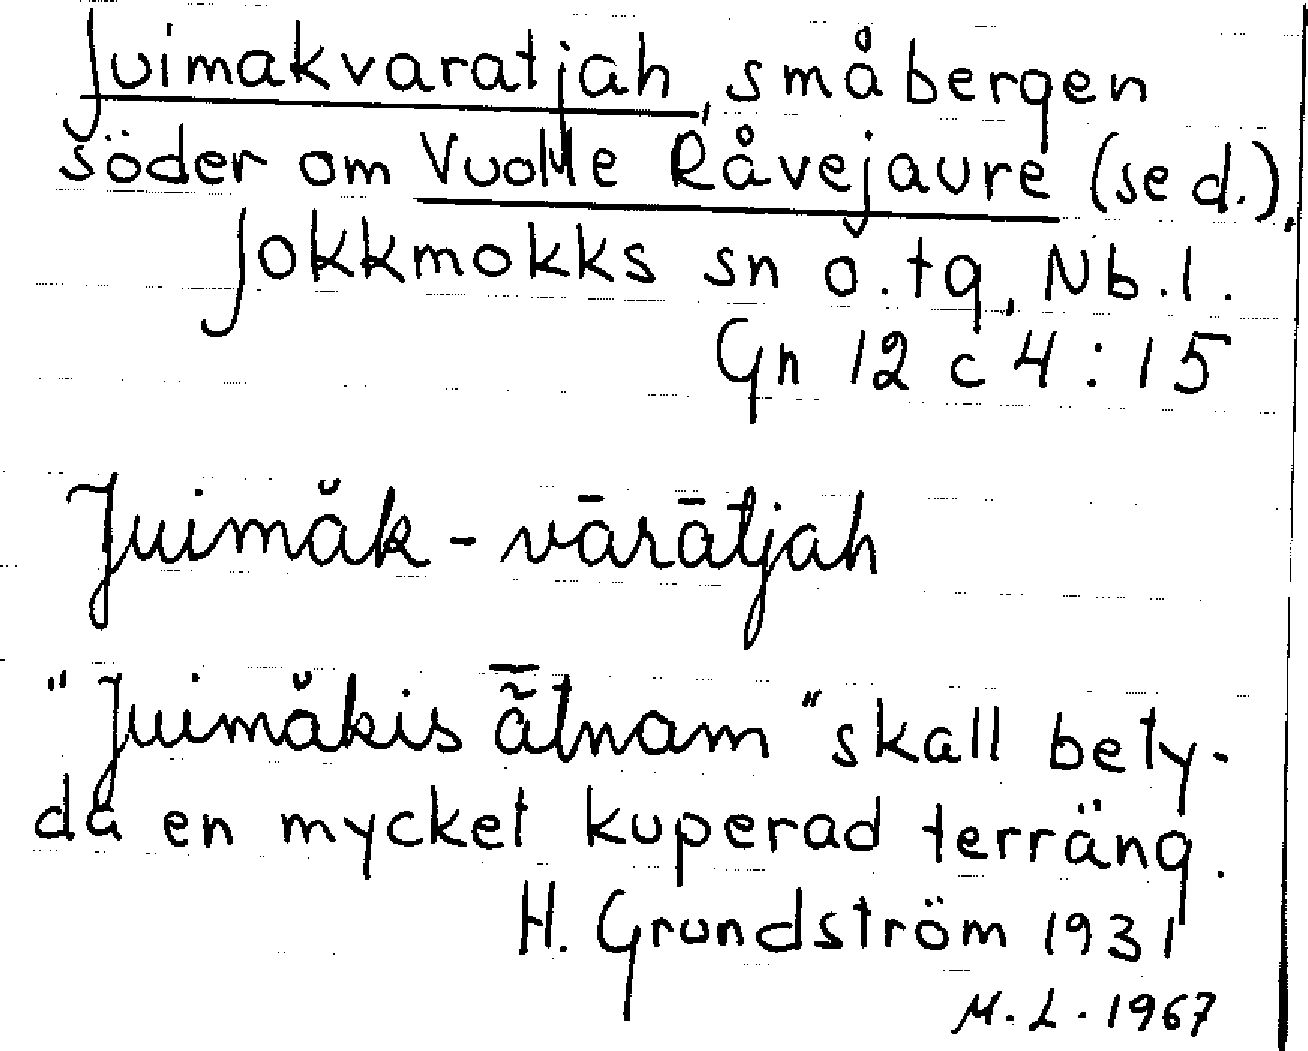 Juimakvaratjah, småbergen
söder om Vuolle Råvejaure (se d.),
Jokkmokks sn o. tg, Nb. l.
Gn 12 c 4:15
Juimǎk - vārātjah
"Juimǎkis ā̃tnam" skall bety-
da en mycket kuperad terräng.
H. Grundström 1931
M. L. 1967